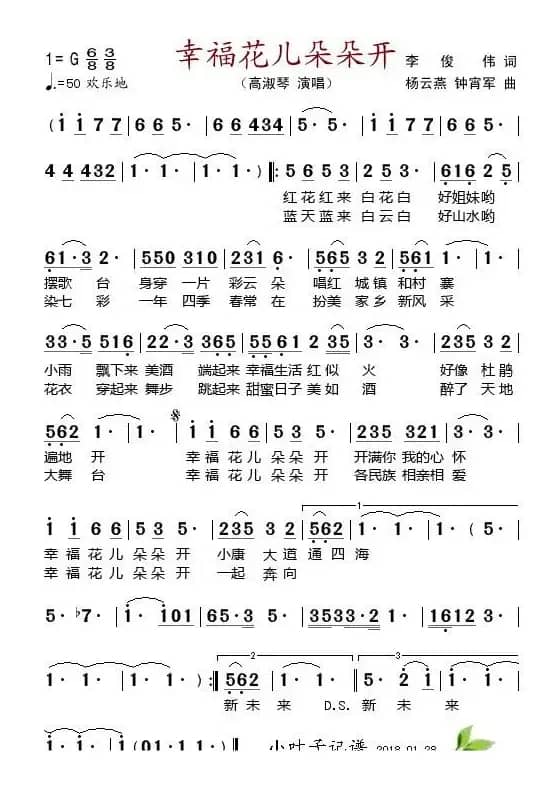 1=G 6/8 3/8 幸福花儿朵朵开 李俊伟 词
♩.=50 欢乐地 （高淑琴 演唱） 杨云燕 钟宵军 曲
( i i 7 7 | 6 6 5 · | 6 6 0 6 6 0 | 6 6 4 3 4 | 5 · 5 · |
4 4 4 3 2 | 1 · 1 · | 1 · 1 · ) ‖: 5 6 5 3 | 2 5 3 · | 6 1 6 2 5 |
红花红来 白花白 好姐妹哟
蓝天蓝来 白云白 好山水哟
6 1 · 3 2 · | 5 5 0 3 1 0 | 2 3 1 6 · | 5 6 5 3 2 | 5 6 1 | 1 · 1 · |
摆歌 台 身穿 一片 彩云 朵 唱红 城镇 和村 寨
染七 彩 一年 四季 春常 在 扮美 家乡 新风 采
3 3 · 5 5 1 6 | 2 2 · 3 3 6 5 | 5 5 6 1 2 | 2 3 5 | 3 · 3 · | 2 3 5 3 2 |
小雨 飘下来 美酒 端起来 幸福生活 红似 火 好像 杜鹃
花衣 穿起来 舞步 跳起来 甜蜜日子 美如 酒 醉了 天地
5 6 2 | 1 · 1 · | i i 6 6 | 5 3 5 · | 2 3 5 3 2 1 | 6 1 2 · |
遍地 开 幸福花儿 朵朵开 开满你 我的心 怀
大舞 台 幸福花儿 朵朵开 各民族 相亲相 爱
i i 6 6 | 5 3 5 · | 2 3 5 3 2 | 5 6 2 | 1 · 1 · (
幸福花儿 朵朵开 小康 大道 通四 海
幸福花儿 朵朵开 一起 奔向
5 · ♭7 · | i · i 0 1 | 6 5 · 3 5 · | 3 5 3 3 · 2 | 1 6 1 2 3 · |
1 · 1 · | 1 · 1 · ) :‖ 5 6 2 | 1 · 1 · | 5 · 2 i | i · i · |
新未 来 D.S. 新 未 来
i · i · | ( 0 1 1 · 1 1 · ) ‖ 小叶子记谱 2018.01.28